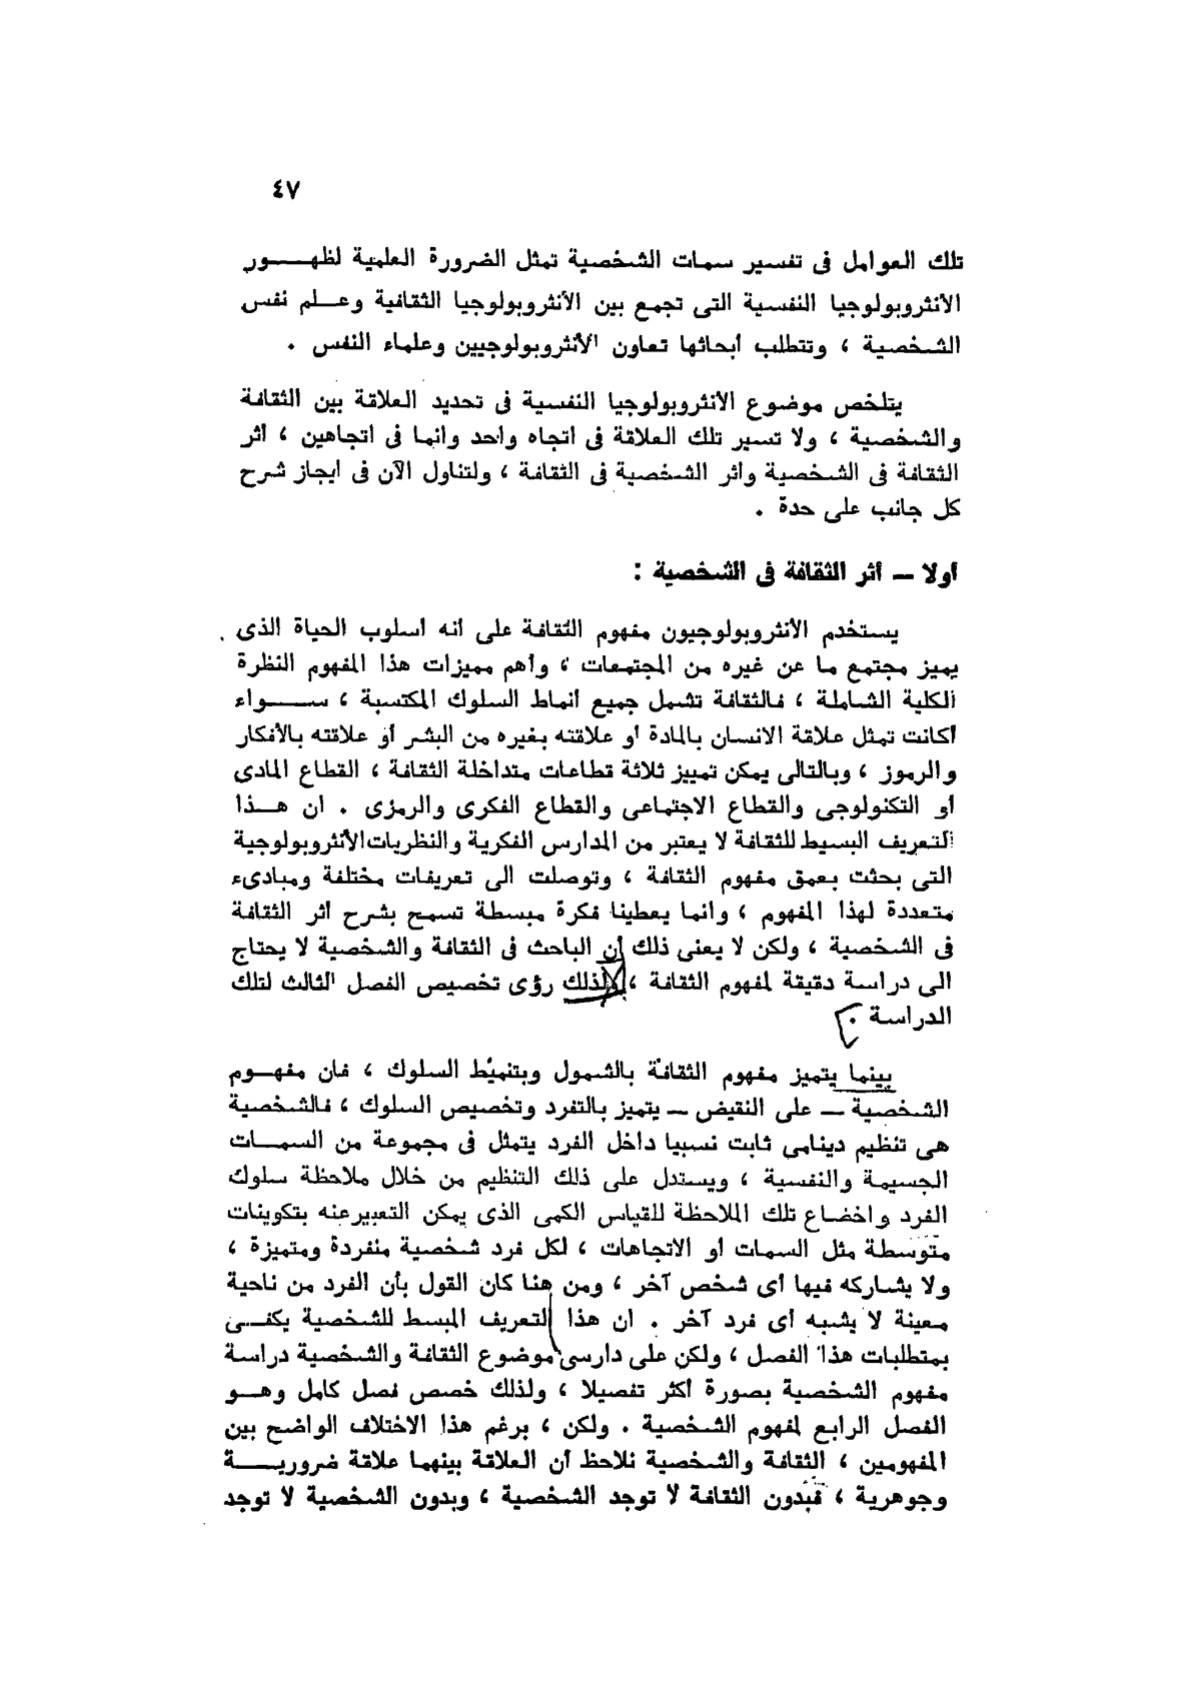 ٤٧
تلك العوامل فى تفسير سمات الشخصية تمثل الضرورة العلمية لظهـــور
الأنثروبولوجيا النفسية التى تجمع بين الأنثروبولوجيا الثقافية وعـلم نفس
الشخصية ، وتتطلب أبحاثها تعاون الأنثروبولوجيين وعلماء النفس .
يتلخص موضوع الأنثروبولوجيا النفسية فى تحديد العلاقة بين الثقافة
والشخصية ، ولا تسير تلك العلاقة فى اتجاه واحد وانما فى اتجاهين ، أثر
الثقافة فى الشخصية وأثر الشخصية فى الثقافة ، ولنتناول الآن فى ايجاز شرح
كل جانب على حدة .
أولا – أثر الثقافة فى الشخصية :
يستخدم الأنثروبولوجيون مفهوم الثقافة على أنه أسلوب الحياة الذى
يميز مجتمع ما عن غيره من المجتمعات ، وأهم مميزات هذا المفهوم النظرة
الكلية الشاملة ، فالثقافة تشمل جميع أنماط السلوك المكتسبة ، ســـواء
أكانت تمثل علاقة الانسان بالمادة أو علاقته بغيره من البشر أو علاقته بالأفكار
والرموز ، وبالتالى يمكن تمييز ثلاثة قطاعات متداخلة الثقافة ، القطاع المادى
أو التكنولوجى والقطاع الاجتماعى والقطاع الفكرى والرمزى . ان هــذا
التعريف البسيط للثقافة لا يعتبر من المدارس الفكرية والنظريات الأنثروبولوجية
التى بحثت بعمق مفهوم الثقافة ، وتوصلت الى تعريفات مختلفة ومبادىء
متعددة لهذا المفهوم ، وانما يعطينا فكرة مبسطة تسمح بشرح أثر الثقافة
فى الشخصية ، ولكن لا يعنى ذلك أن الباحث فى الثقافة والشخصية لا يحتاج
الى دراسة دقيقة لمفهوم الثقافة ، ولذلك رؤى تخصيص الفصل الثالث لتلك
الدراسة .
بينما يتميز مفهوم الثقافة بالشمول وبتنميط السلوك ، فان مفهــوم
الشخصية – على النقيض – يتميز بالتفرد وتخصيص السلوك ، فالشخصية
هى تنظيم دينامى ثابت نسبيا داخل الفرد يتمثل فى مجموعة من السمـات
الجسيمة والنفسية ، ويستدل على ذلك التنظيم من خلال ملاحظة سلوك
الفرد واخضاع تلك الملاحظة للقياس الكمى الذى يمكن التعبير عنه بتكوينات
متوسطة مثل السمات أو الاتجاهات ، لكل فرد شخصية منفردة ومتميزة ،
ولا يشاركه فيها أى شخص آخر ، ومن هنا كان القول بأن الفرد من ناحية
معينة لا يشبه أى فرد آخر . ان هذا التعريف المبسط للشخصية يكفــى
بمتطلبات هذا الفصل ، ولكن على دارسى موضوع الثقافة والشخصية دراسة
مفهوم الشخصية بصورة أكثر تفصيلا ، ولذلك خصص فصل كامل وهــو
الفصل الرابع لمفهوم الشخصية . ولكن ، برغم هذا الاختلاف الواضح بين
المفهومين ، الثقافة والشخصية نلاحظ أن العلاقة بينهما علاقة ضروريـــة
وجوهرية ، فبدون الثقافة لا توجد الشخصية ، وبدون الشخصية لا توجد